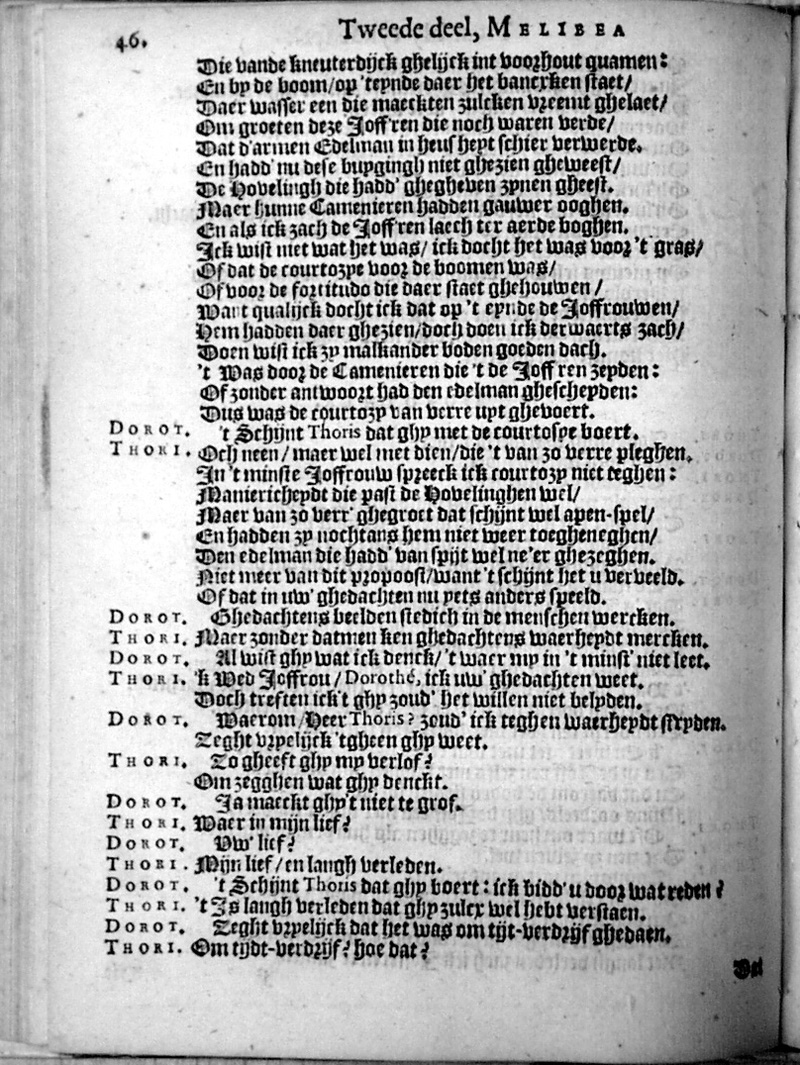 46. Tweede deel, MELIBEA
Die vande kneuterdijck ghelijck int voorhout quamen:
En by de boom/op 'teynde daer het bancxken staet/
Daer wasser een die maeckten zulcken vreemt ghelaet/
Om groeten deze Joff'ren die noch waren verde/
Dat d'armen Edelman in heusheyt schier verwerde.
En hadd' nu dese buygingh niet ghezien gheweest/
De Hovelingh die hadd' ghegheven zynen gheest.
Maer hunne Camenieren hadden gauwer ooghen.
En als ick zach de Joff'ren laech ter aerde boghen.
Ick wist niet wat het was/ ick docht het was voor 't gras/
Of dat de courtozye voor de boomen was/
Of voor de fortitudo die daer staet ghehouwen/
Want qualijck docht ick dat op 't eynde de Joffrouwen/
Hem hadden daer ghezien/doch doen ick derwaerts zach/
Doen wist ick zy malkander boden goeden dach.
't Was door de Camenieren die 't de Joff'ren zeyden:
Of zonder antwoort had den edelman ghescheyden:
Dus was de courtozy van verre uyt ghevoert.
DOROT. 't Schijnt Thoris dat ghy met de courtosye boert.
THORI. Och neen/ maer wel met dien/die 't van zo verre pleghen.
In 't minste Joffrouw spreeck ick courtozy niet teghen:
Maniericheydt die past de Hovelinghen wel/
Maer van zo verr' ghegroet dat schijnt wel apen-spel/
En hadden zy nochtans hem niet weer toegheneghen/
Den edelman die hadd' van spijt wel ne'er ghezeghen.
Niet meer van dit propoost/want 't schijnt het u verveeld.
Of dat in uw' ghedachten nu yets anders speeld.
DOROT. Ghedachtens beelden stedich in de menschen wercken.
THORI. Maer zonder datmen ken ghedachtens waerheydt mercken.
DOROT. Al wist ghy wat ick denck/ 't waer my in 't minst' niet leet.
THORI. 'k Wed Joffrou/ Dorothé, ick uw' ghedachten weet.
Doch treften ick't ghy zoud' het willen niet belyden.
DOROT. Waerom/Heer Thoris? zoud' ick teghen waerheydt stryden.
Zeght vrpelijck 'tgheen ghy weet.
THORI. Zo gheeft ghy my verlof?
Om zegghen wat ghy denckt.
DOROT. Ja maeckt ghy't niet te grof.
THORI. Waer in mijn lief?
DOROT. Uw' lief?
THORI. Mijn lief/en langh verleden.
DOROT. 't Schijnt Thoris dat ghy boert: ick bidd' u door wat reden?
THORI. 't Is langh verleden dat ghy zulcx wel hebt verstaen.
DOROT. Zeght vrpelijck dat het was om tijt-verdrijf ghedaen.
THORI. Om tijdt-verdrijf? hoe dat?